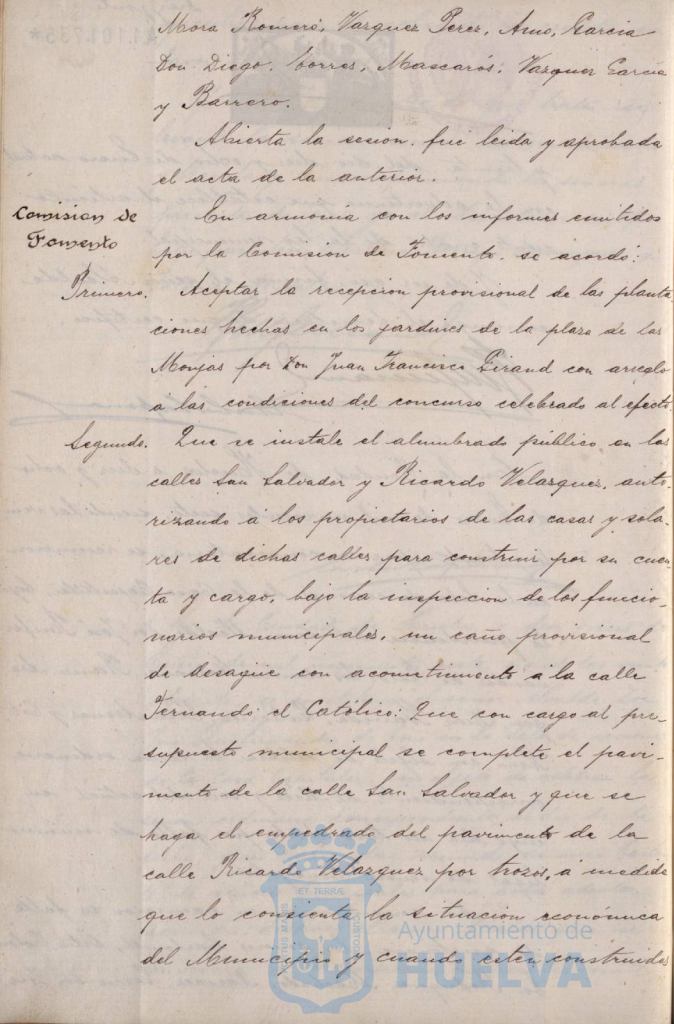 Mora Romero, Vazquez Perez, Amo, Garcia
Don Diego, Torres, Mascarós, Vazquez Garcia
y Barrero.
Abierta la sesion, fué leida y aprobada
el acta de la anterior.
Comision de
Fomento
En armonia con los informes emitidos
por la Comision de Fomento, se acordó:
Primero. Aceptar la recepcion provisional de las planta-
ciones hechas en los jardines de la plaza de las
Monjas por Don Juan Francisco Girand con arreglo
á las condiciones del concurso celebrado al efecto.
Segundo. Que se instale el alumbrado público en las
calles San Salvador y Ricardo Velazquez, auto-
rizando á los propietarios de las casas y sola-
res de dichas calles para construir por su cuen-
ta y cargo, bajo la inspeccion de los funcio-
narios municipales, un caño provisional
de desagüe con acometimiento á la calle
Fernando el Católico: Que con cargo al pre-
supuesto municipal se complete el pavi-
mento de la calle San Salvador y que se
haga el empedrado del pavimento de la
calle Ricardo Velazquez por trozos, á medida
que lo consienta la situacion económica
del Municipio y cuando esten construidos
ET TERRÆ
Ayuntamiento de
HUELVA